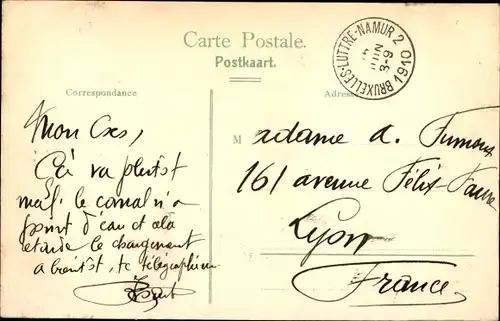 Carte Postale.
Postkaart.
BRUXELLES-LUTTRE-NAMUR 2
JUIN
3-9
1910
Correspondance
Adresse
Mon
Ça va plutôt
mal. le canal n'a
point d'eau et cela
retarde le chargement
à bientôt, te télégraphierai
Madame A.
161 avenue Félix-Faure
Lyon
France.